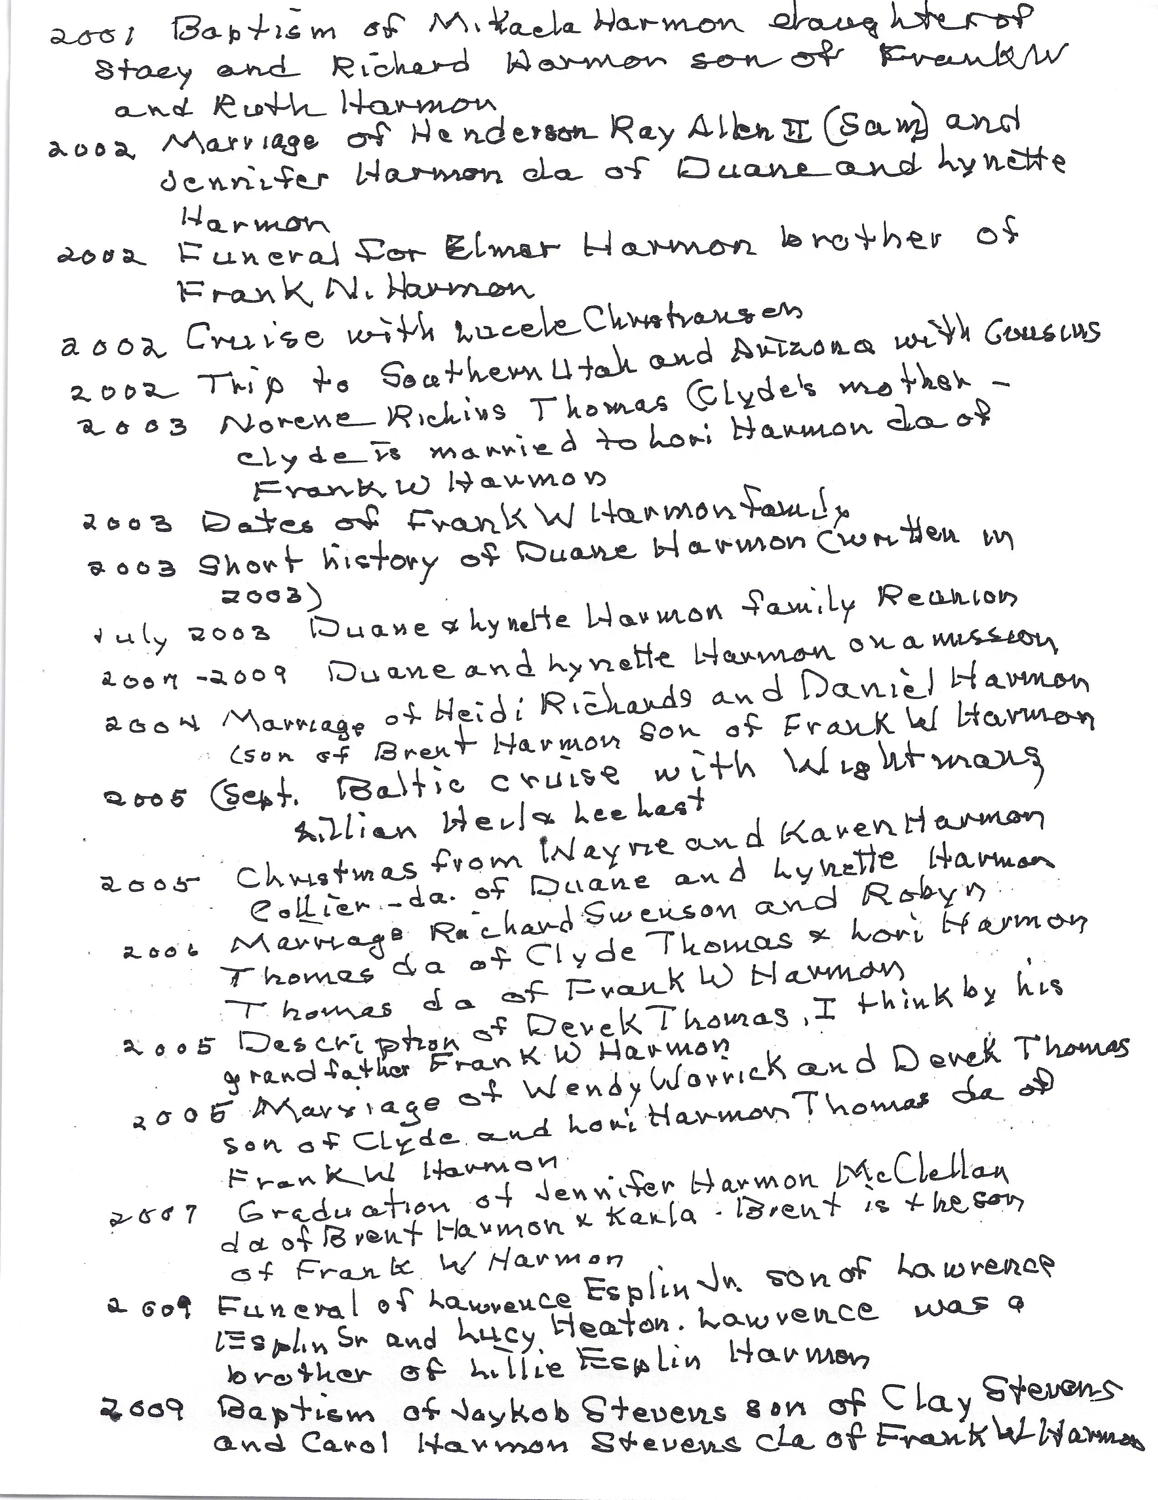 2001 Baptism of Mikaela Harmon daughter of
Stacy and Richard Harmon son of Frank W
and Ruth Harmon
2002 Marriage of Henderson Ray Allen II (Sam) and
Jennifer Harmon da of Duane and Lynette
Harmon
2002 Funeral for Elmer Harmon brother of
Frank N. Harmon
2002 Cruise with Lucele Christiansen
2002 Trip to Southern Utah and Arizona with Cousins
2003 Norene Richins Thomas (Clyde's mother -
Clyde is married to Lori Harmon da of
Frank W Harmon
2003 Dates of Frank W Harmon family
2003 Short history of Duane Harmon (written in
2003)
July 2003 Duane & Lynette Harmon family Reunion
2007 - 2009 Duane and Lynette Harmon on a mission
2004 Marriage of Heidi Richards and Daniel Harmon
(son of Brent Harmon son of Frank W Harmon
2005 (Sept. Baltic cruise with Wightmans
Lillian Heil & Lee Last
2005 Christmas from Wayne and Karen Harmon
Collier - da. of Duane and Lynette Harmon
2006 Marriage Richard Swenson and Robyn
Thomas da of Clyde Thomas & Lori Harmon
Thomas da of Frank W Harmon
2005 Description of Derek Thomas, I think by his
grandfather Frank W Harmon
2005 Marriage of Wendy Warrick and Derek Thomas
son of Clyde and Lori Harmon Thomas da of
Frank W Harmon
2007 Graduation of Jennifer Harmon McClellan
da of Brent Harmon & Karla. Brent is the son
of Frank W Harmon
2009 Funeral of Lawrence Esplin Jr. son of Lawrence
Esplin Sr and Lucy Heaton. Lawrence was a
brother of Lillie Esplin Harmon
2009 Baptism of Jaykob Stevens son of Clay Stevens
and Carol Harmon Stevens da of Frank W Harmon